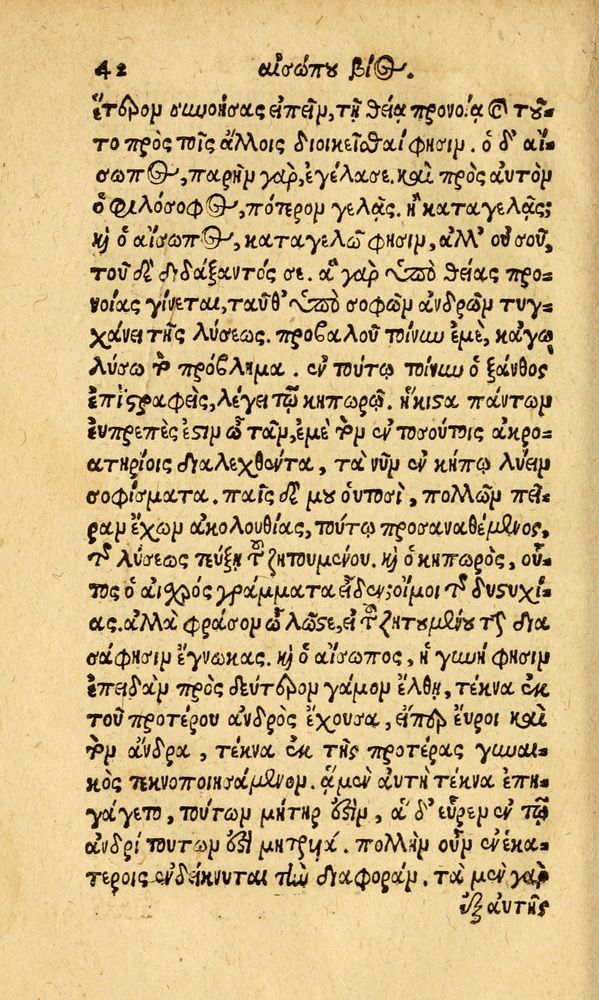 42 αἰσώπου βίος.
ἕτερον συννοήσας εἰπεῖν, τῇ θείᾳ προνοίᾳ τοῦ-
το πρὸς τοῖς ἄλλοις διοικεῖσθαί φησιν. ὁ δ' αἴ-
σωπος, παρῆν γὰρ, ἐγέλασε. καὶ πρὸς αὐτὸν
ὁ φιλόσοφος, πότερον γελᾷς. ἢ καταγελᾷς;
καὶ ὁ αἴσωπος, καταγελῶ φησιν, ἀλλ' οὐ σοῦ,
τοῦ δὲ διδάξαντός σε. ἃ γὰρ ὑπὸ θείας προ-
νοίας γίνεται, ταῦθ' ὑπὸ σοφῶν ἀνδρῶν τυγ-
χάνει τῆς λύσεως. προβαλοῦ τοίνυν ἐμὲ, κἀγὼ
λύσω τὸ πρόβλημα. ἐν τούτῳ τοίνυν ὁ ξάνθος
ἐπιστραφεὶς, λέγει τῷ κηπωρῷ. ἥκιστα πάντων
εὐπρεπές ἐστιν ὦ τᾶν, ἐμὲ τὸν ἐν τοσούτοις ἀκρο-
ατηρίοις διαλεχθέντα, τὰ νῦν ἐν κήπῳ λύειν
σοφίσματα. παῖς δέ μου οὑτοσὶ, πολλῶν πεῖ-
ραν ἔχων ἀκολουθίας, τούτῳ προσαναθέμενος,
τῆς λύσεως τεύξῃ τοῦ ζητουμένου. καὶ ὁ κηπωρός, οὗ-
τος ὁ αἰσχρός γράμματα εἶδεν; οἴμοι τῆς δυστυχί-
ας. ἀλλὰ φράσον ὦ λῷστε, εἰ τοῦ ζητουμένου τὴν δια
σάφησιν ἔγνωκας. καὶ ὁ αἴσωπος, ἡ γυνή φησιν
ἐπειδὰν πρὸς δεύτερον γάμον ἔλθῃ, τέκνα ἐκ
τοῦ προτέρου ἀνδρὸς ἔχουσα, εἴπερ εὕροι καὶ
τὸν ἄνδρα, τέκνα ἐκ τῆς προτέρας γυναι-
κὸς τεκνοποιησάμενον. ἃ μὲν αὐτὴ τέκνα ἐπη-
γάγετο, τούτων μήτηρ ἐστίν, ἃ δ' εὗρεν ἐν τῷ
ἀνδρί τούτων ἐστὶ μητρυιά. πολλὴν οὖν ἐν ἑκα-
τέροις ἐνδείκνυται τὴν διαφοράν. τὰ μὲν γὰρ
ἐξ αὐτῆς